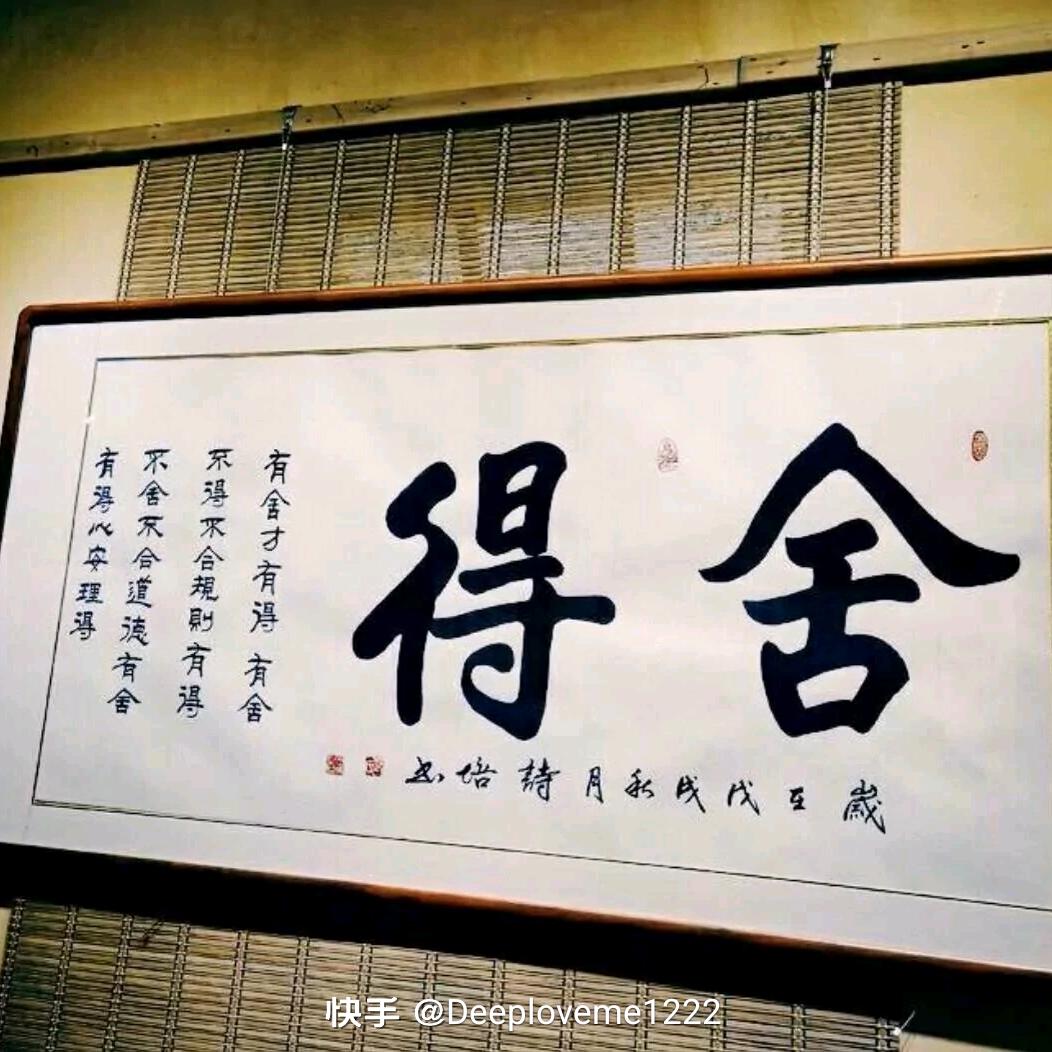 舍得
有舍才有得有舍
不得不合規則有得
不舍不合道德有舍
有得心安理得
歲在戊戌秋月詩培书
快手 @Deeploveme1222